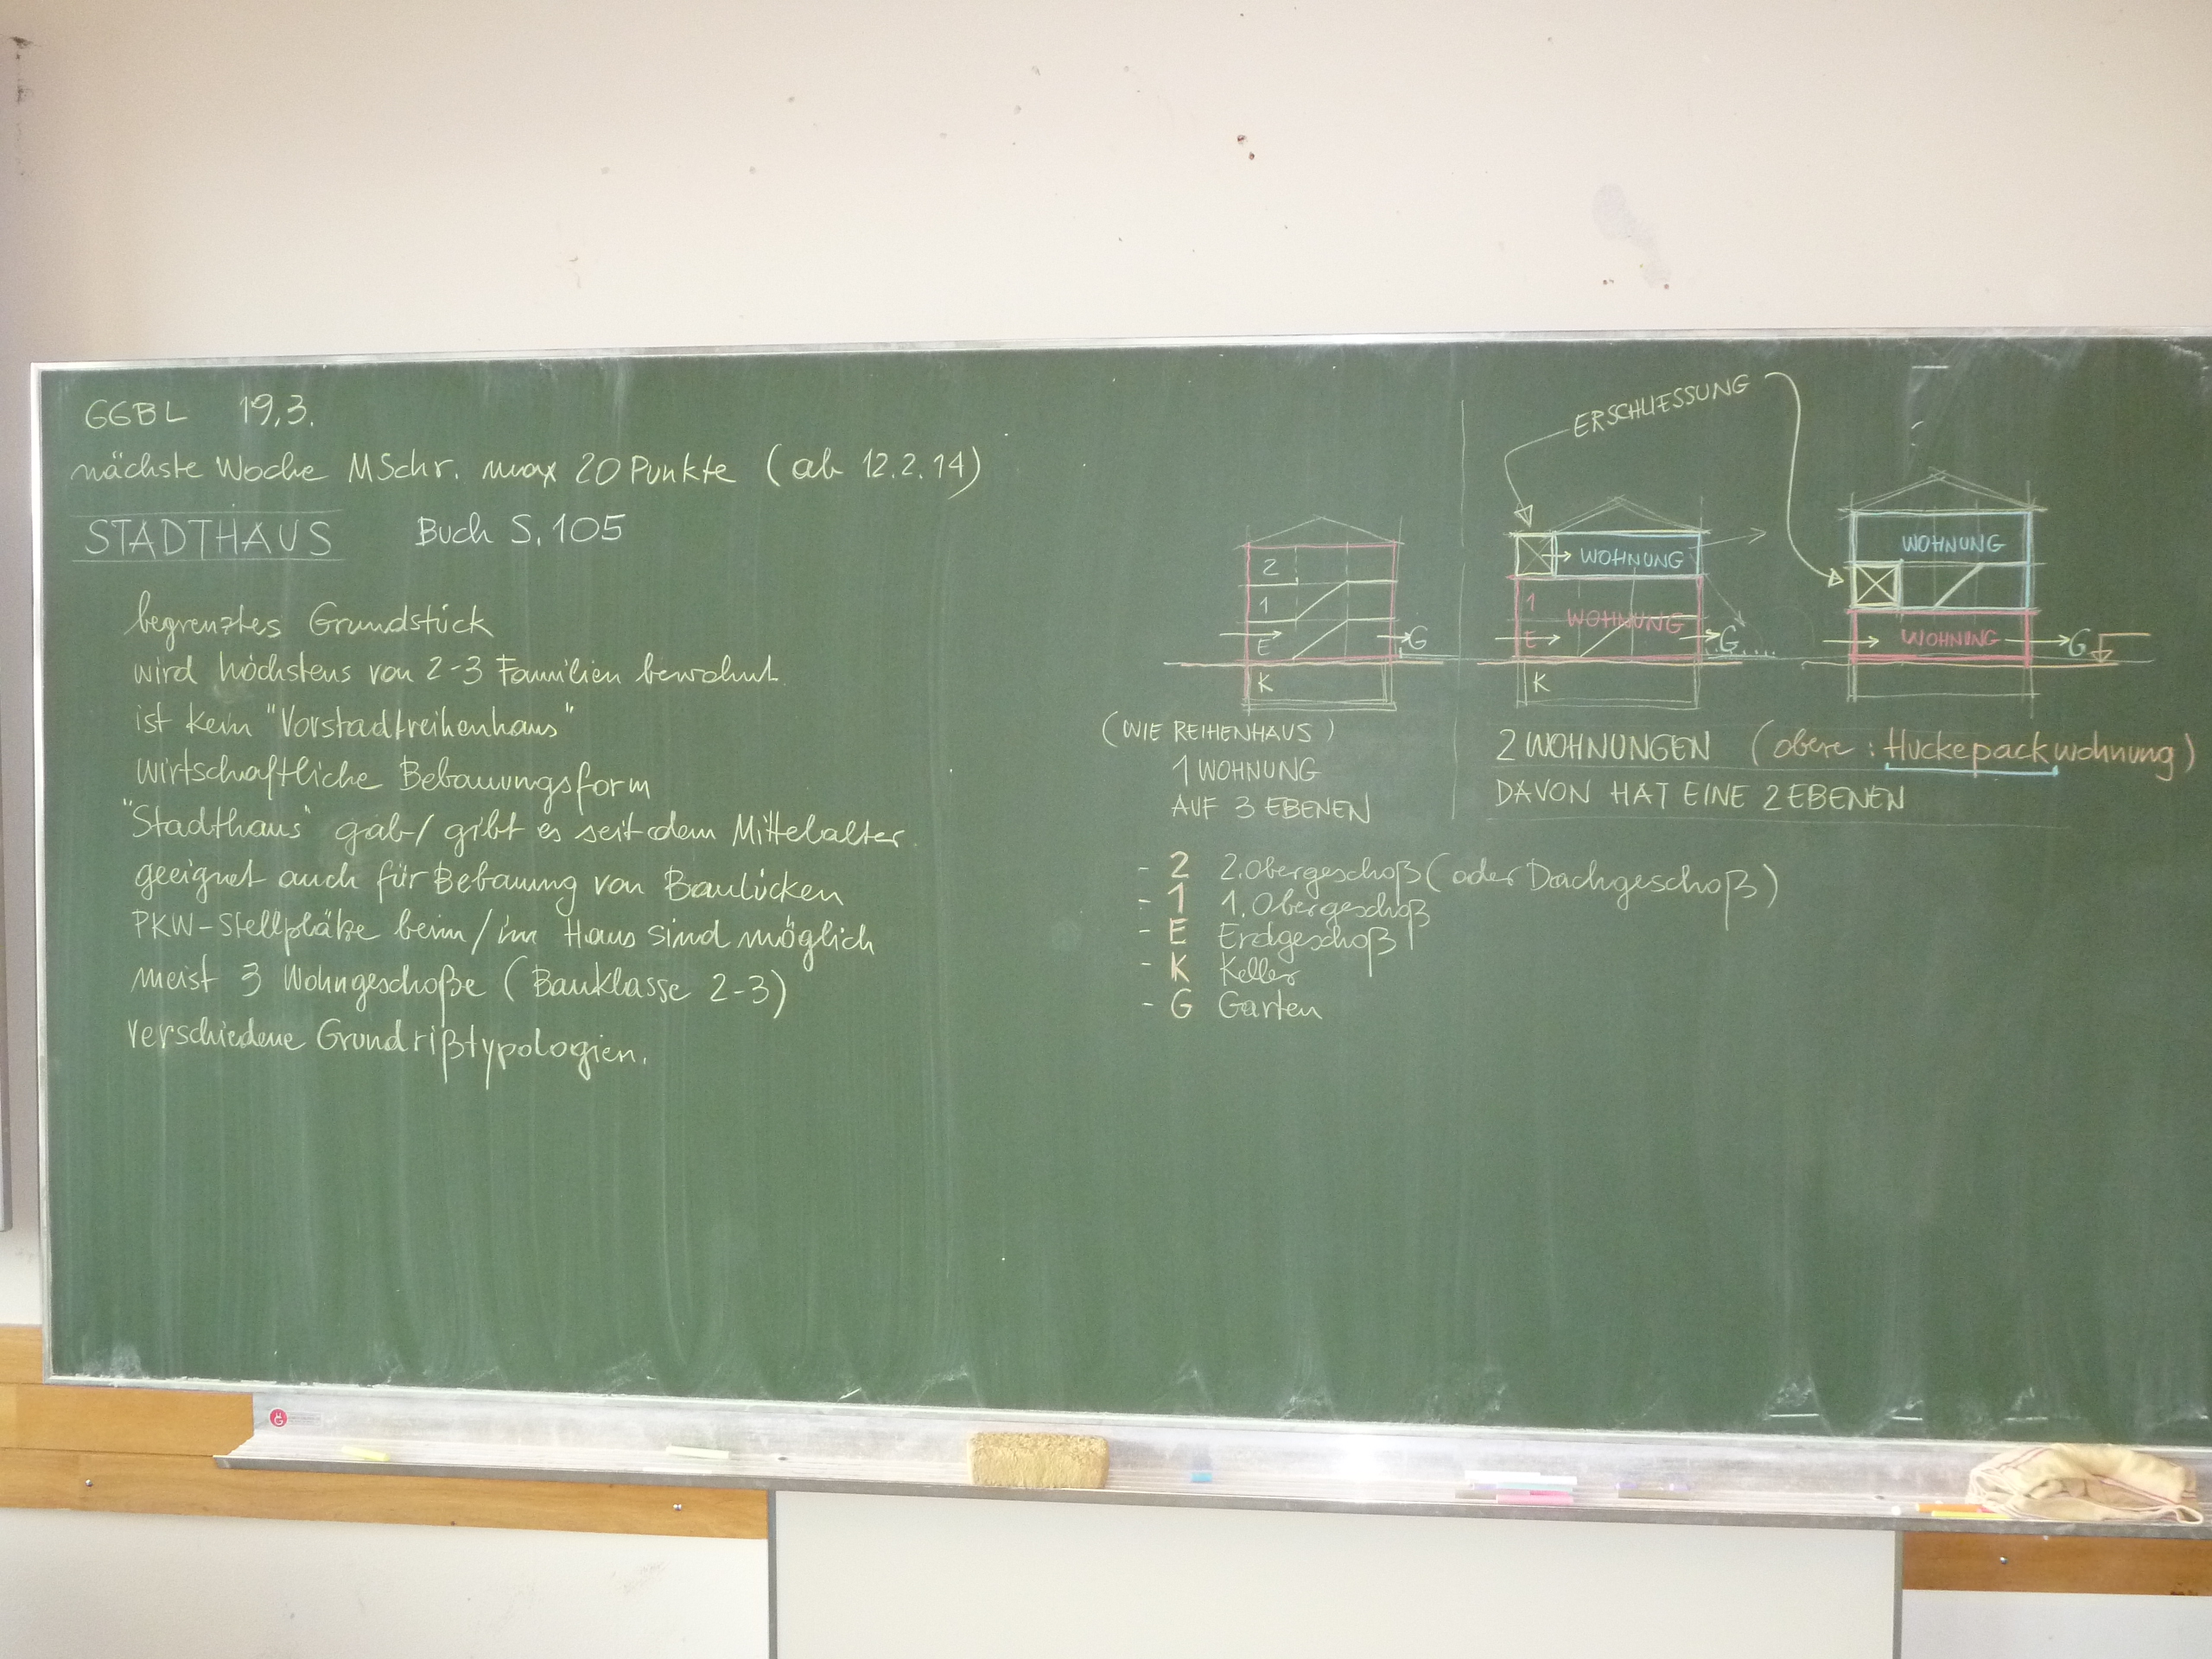 GGBL 19.3.
nächste Woche MSchr. max 20 Punkte (ab 12.2.14)
STADTHAUS Buch S. 105
begrenztes Grundstück
wird höchstens von 2-3 Familien bewohnt.
ist kein "Vorstadtreihenhaus"
wirtschaftliche Bebauungsform
"Stadthaus" gab/gibt es seit dem Mittelalter.
geeignet auch für Bebauung von Baulücken
PKW-Stellplätze beim/im Haus sind möglich
meist 3 Wohngeschoße (Bauklasse 2-3)
verschiedene Grundrißtypologien.
2
1
E
G
K
(WIE REIHENHAUS)
1 WOHNUNG
AUF 3 EBENEN
ERSCHLIESSUNG
WOHNUNG
1 WOHNUNG
E
G
K
WOHNUNG
WOHNUNG
G
2 WOHNUNGEN (obere: Huckepackwohnung)
DAVON HAT EINE 2 EBENEN
- 2 2. Obergeschoß (oder Dachgeschoß)
- 1 1. Obergeschoß
- E Erdgeschoß
- K Keller
- G Garten